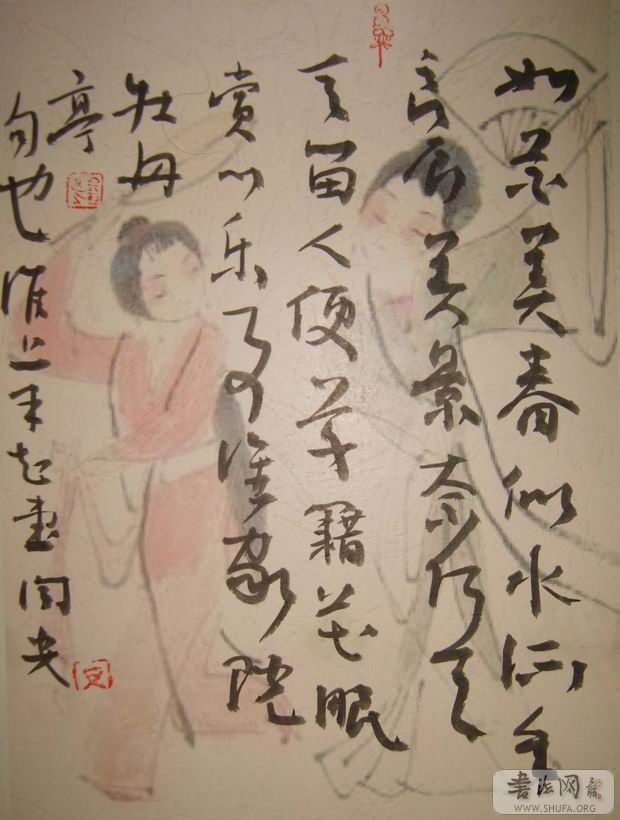 如花美眷似水流年
良辰美景奈何天
天留人便草籍花眠
赏心乐事谁家院
牡丹
亭
句也淮上
书法网
WWW.SHUFA.ORG